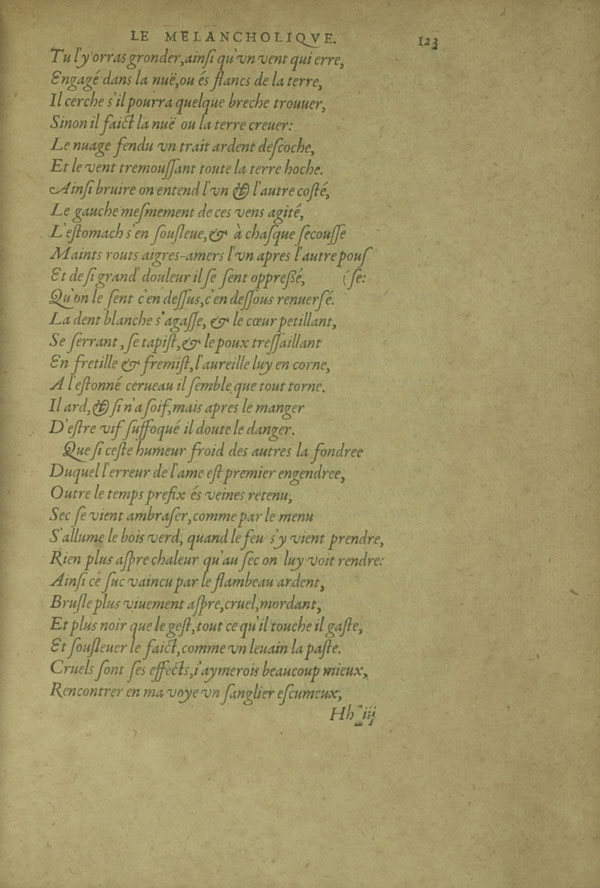 LE MELANCHOLIQVE. 123
Tu l'y orras gronder, ainſi qu'vn vent qui erre,
Engagé dans la nuë, ou és flancs de la terre,
Il cerche s'il pourra quelque breche trouuer,
Sinon il faict la nuë ou la terre creuer:
Le nuage fendu vn trait ardent deſcoche,
Et le vent tremouſſant toute la terre hoche.
Ainſi bruire on entend l'vn & l'autre coſté,
Le gauche meſmement de ces vens agité,
L'eſtomach s'en ſouſleue, & à chaſque ſecouſſe
Maints routs aigres-amers l'vn apres l'autre pouſ
Et de ſi grand' douleur il ſe ſent oppreßé, (ſe:
Qu'on le ſent c'en deſſus, c'en deſſous renuerſé.
La dent blanche s'agaſſe, & le cœur petillant,
Se ſerrant, ſe tapiſt, & le poux treſſaillant
En fretille & fremiſt, l'aureille luy en corne,
A l'eſtonné cerueau il ſemble que tout torne.
Il ard, & ſi n'a ſoif, mais apres le manger
D'eſtre vif ſuffoqué il doute le danger.
Que ſi ceſte humeur froid des autres la fondree
Duquel l'erreur de l'ame eſt premier engendree,
Outre le temps prefix és veines retenu,
Sec ſe vient ambraſer, comme par le menu
S'allume le bois verd, quand le feu s'y vient prendre,
Rien plus aſpre chaleur qu'au ſec on luy voit rendre:
Ainſi cé ſuc vaincu par le flambeau ardent,
Bruſle plus viuement aſpre, cruel, mordant,
Et plus noir que le geſt, tout ce qu'il touche il gaſte,
Et ſouſleuer le faict, comme vn leuain la paſte.
Cruels ſont ſes effects, i'aymerois beaucoup mieux,
Rencontrer en ma voye vn ſanglier eſcumeux,
Hh iij